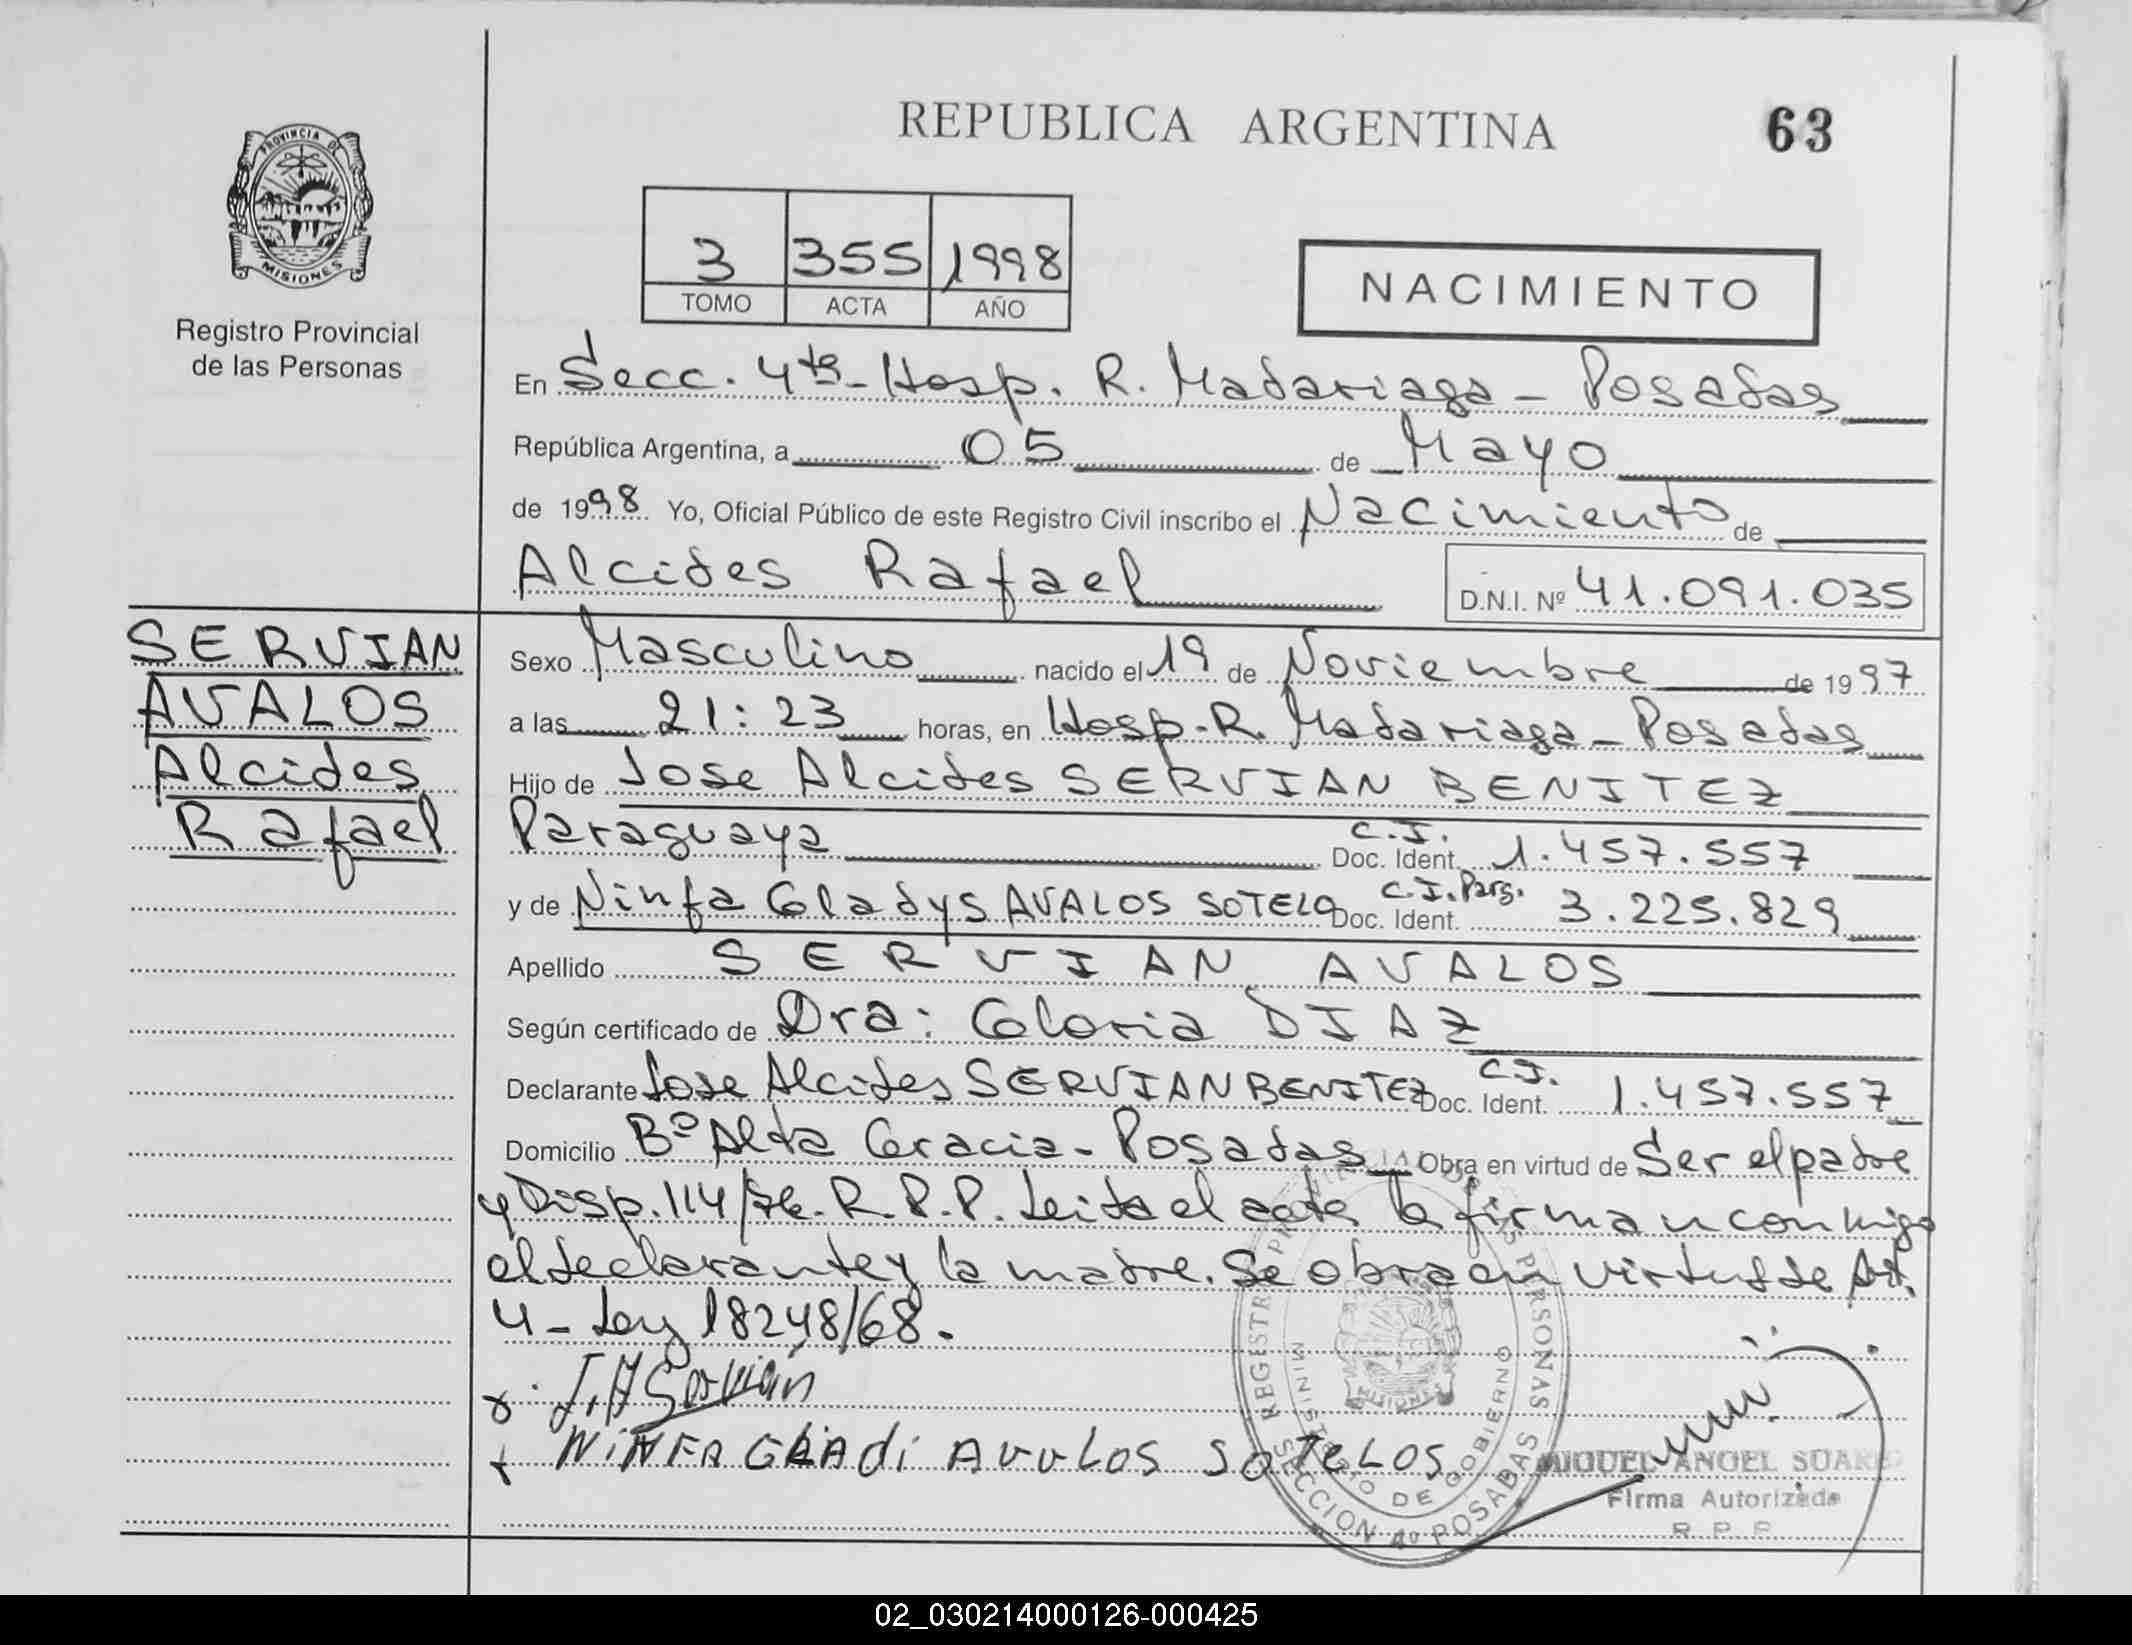 REPUBLICA ARGENTINA
63
PROVINCIA DE MISIONES
Registro Provincial
de las Personas
3 355 1998
TOMO ACTA AÑO
NACIMIENTO
En Secc. 4ta - Hosp. R. Madariaga - Posadas
República Argentina, a 05 de Mayo
de 1998. Yo, Oficial Público de este Registro Civil inscribo el Nacimiento de
Alcides Rafael D.N.I. Nº 41.091.035
SERVIAN
AVALOS
Alcides
Rafael
Sexo Masculino nacido el 19 de Noviembre de 1997
a las 21:23 horas, en Hosp. R. Madariaga - Posadas
Hijo de Jose Alcides SERVIAN BENITEZ
Paraguaya C.I. Doc. Ident. 1.457.557
y de Ninfa Gladys AVALOS SOTELO C.I. Parg. Doc. Ident. 3.225.829
Apellido SERVIAN AVALOS
Según certificado de Dra: Gloria DIAZ
Declarante Jose Alcides SERVIAN BENITEZ C.I. Doc. Ident. 1.457.557
Domicilio Bº Alta Gracia - Posadas Obra en virtud de Ser el padre
y Disp. 114/ R.P.P. Leida el acta la firman conmigo
el declarante y la madre. Se obra en virtud de Art.
4 - Ley 18248/68.
J.A Servián
NiNFA GLAdi AVULOS SOTELOS
REGISTRO PROVINCIAL DE LAS PERSONAS
MINISTERIO DE GOBIERNO
MISIONES
SECCION 4º POSADAS
MIGUEL ANGEL SUAREZ
Firma Autorizada
R. P. P.
02_030214000126-000425